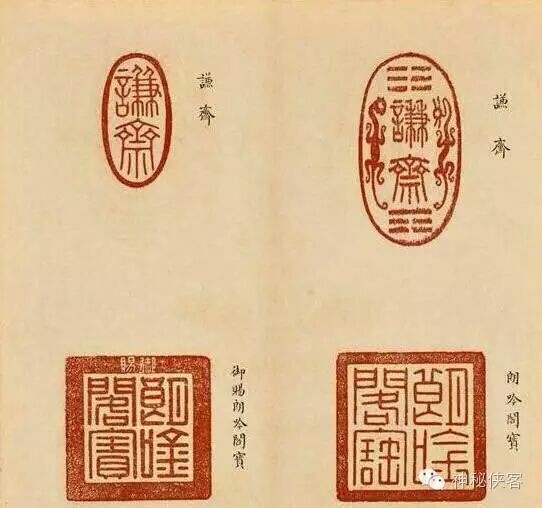 謙齋
謙齋
朗吟閣寶
朗吟閣寶
謙齋
謙齋
御賜
朗吟閣寶
御賜朗吟閣寶
神秘侠客